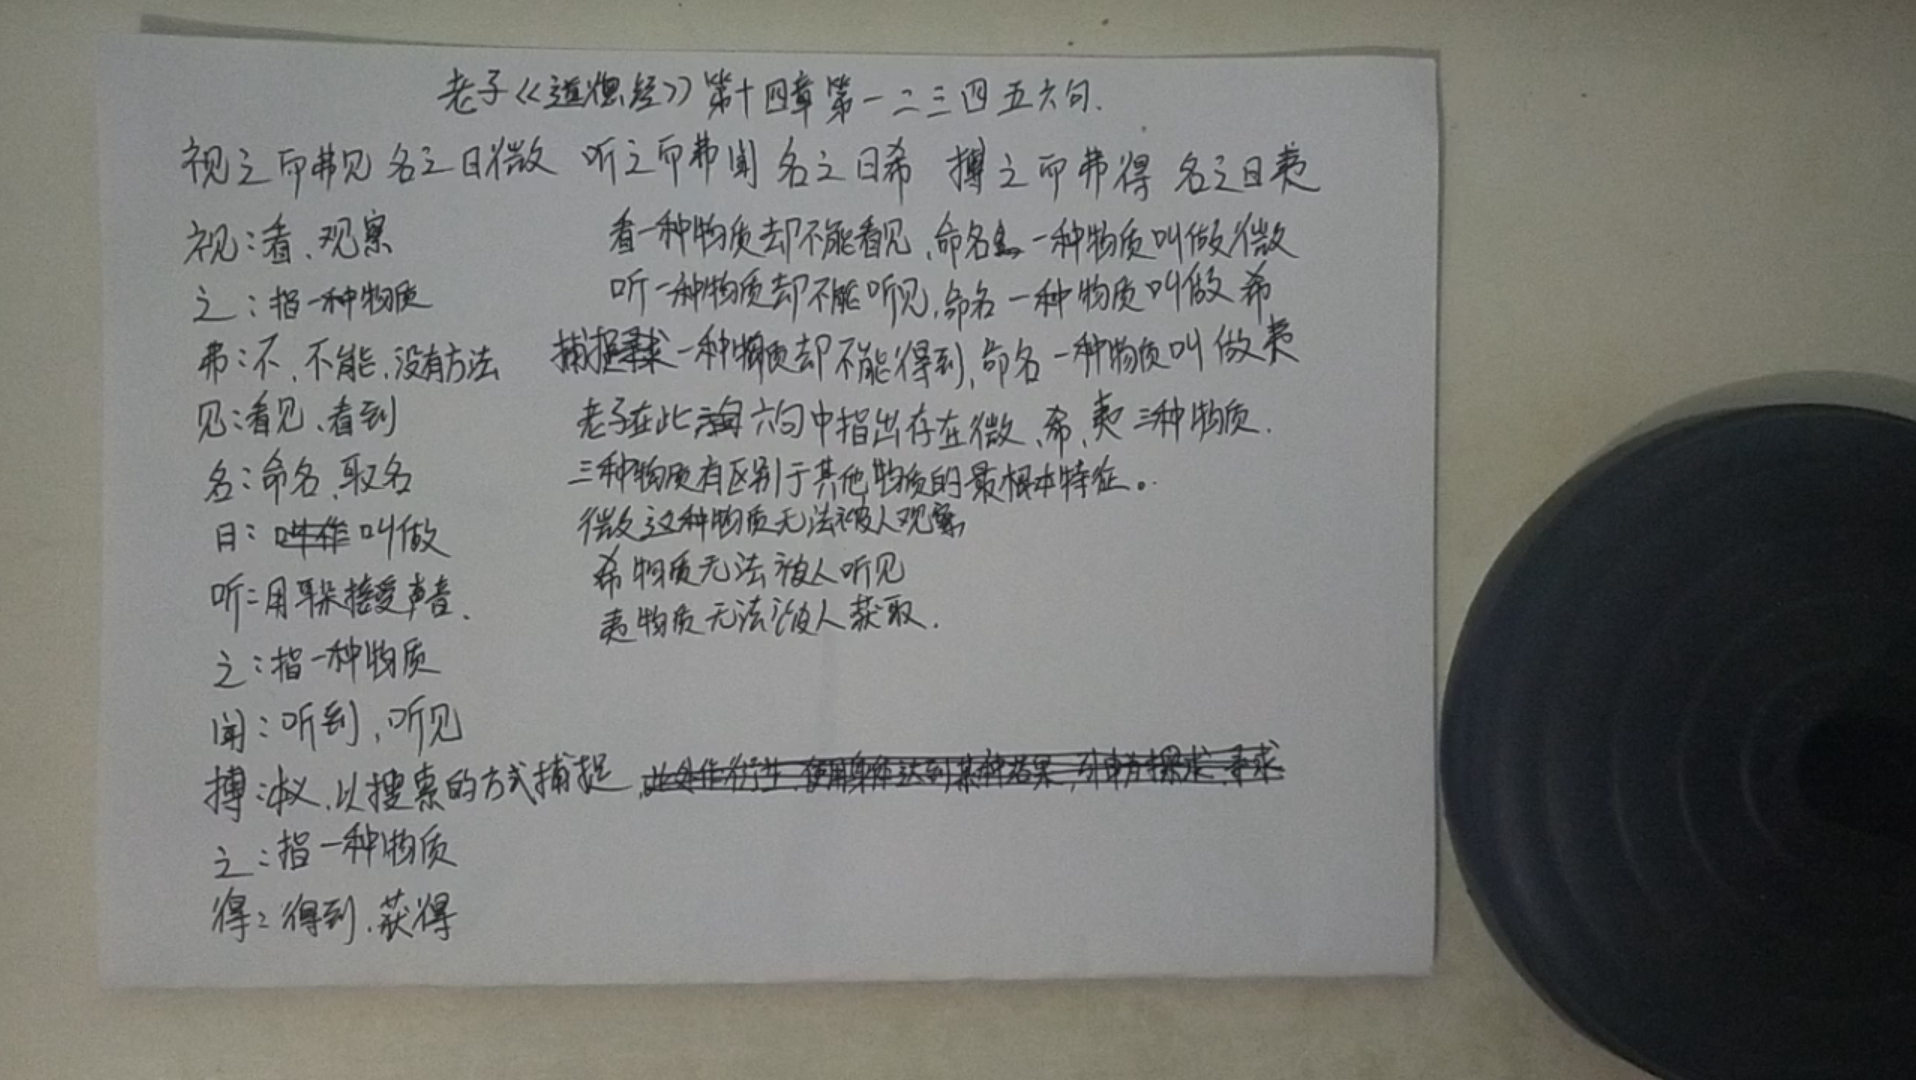 老子《道德经》第十四章第一二三四五六句.
视之而弗见 名之曰微 听之而弗闻 名之曰希 搏之而弗得 名之曰夷
视:看、观察
之:指一种物质
弗:不、不能、没有方法
见:看见、看到
名:命名、取名
曰:叫作 叫做
听:用耳朵接受声音.
之:指一种物质
闻:听到,听见
搏:以搜索的方式捕捉
之:指一种物质
得:得到、获得
看一种物质却不能看见,命名 一种物质叫做微
听一种物质却不能听见,命名一种物质叫做希
捕捉 一种物质却不能得到,命名一种物质叫做夷
老子在此 六句中指出存在微、希、夷三种物质.
三种物质有区别于其他物质的最根本特征。
微这种物质无法被人观察,
希物质无法被人听见
夷物质无法被人获取.